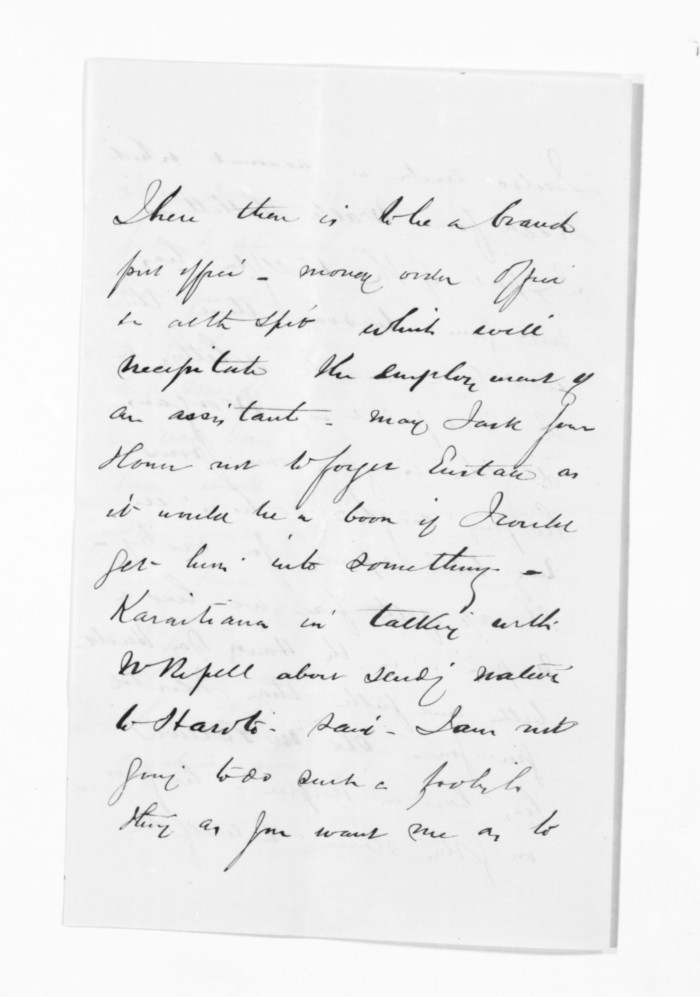 There then is to be a branch
post office - money order office
in at the Spit which will
necessitate the employment of
an assistant - may I ask your
Honor not to forget Eustace as
it would be a boon if I could
get him into something -
Karaitiana in talking with
W. Russell about sendg natives
to said - I am not
going to do such a foolish
thing as you want me as to